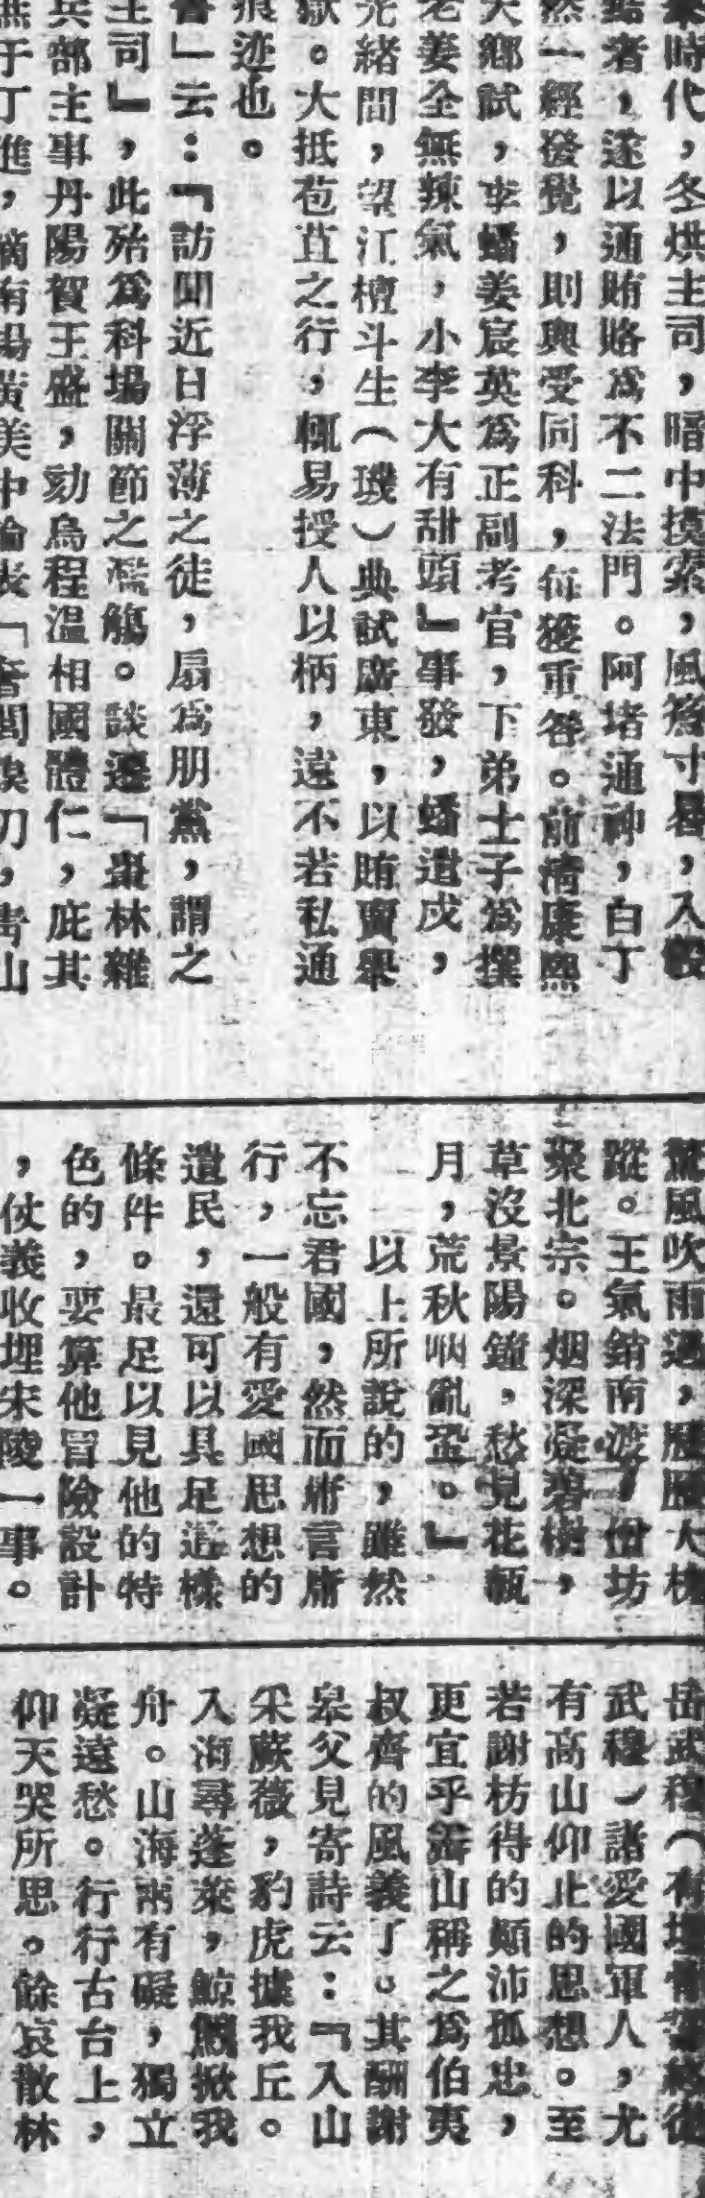 時代，冬烘主司，暗中摸索，風簷寸晷，入彀
者，遂以通賄賂爲不二法門。阿堵通神，白丁
然一經發覺，則與受同科，每獲重咎。前清康熙
天鄉試，李蟠姜宸英爲正副考官，下弟士子爲撰
老姜全無辣氣，小李大有甜頭』事發，蟠遣戍，
光緒間，望江檀斗生（璣）典試廣東，以賄賣舉
獄。大抵苞苴之行，輒易授人以柄，遠不若私通
痕迹也。
」云：『訪聞近日浮薄之徒，扇爲朋黨，謂之
主司』，此殆爲科場關節之濫觴。談遷「棗林雜
兵部主事丹陽賀王盛，劾烏程溫相國體仁，庇其
于丁進，
驚風吹雨過，歷歷大槐
蹤。王氣銷南渡，僧坊
聚北宗。烟深凝碧樹，
草沒景陽鐘，愁見花甎
月，荒秋咽亂蛩。』
以上所說的，雖然
不忘君國，然而庸言庸
行，一般有愛國思想的
遺民，還可以具足這樣
條件。最足以見他的特
色的，要算他冒險設計
，仗義收埋宋陵一事。
岳武穆（有
武穆）諸愛國軍人，尤
有高山仰止的思想。至
若謝枋得的顛沛孤忠，
更宜乎霽山稱之爲伯夷
叔齊的風義了。其酬謝
皋父見寄詩云：『入山
采蕨薇，豹虎據我丘。
入海尋蓬萊，鯨鯢掀我
舟。山海兩有礙，獨立
凝遠愁。行行古台上，
仰天哭所思。餘哀散林